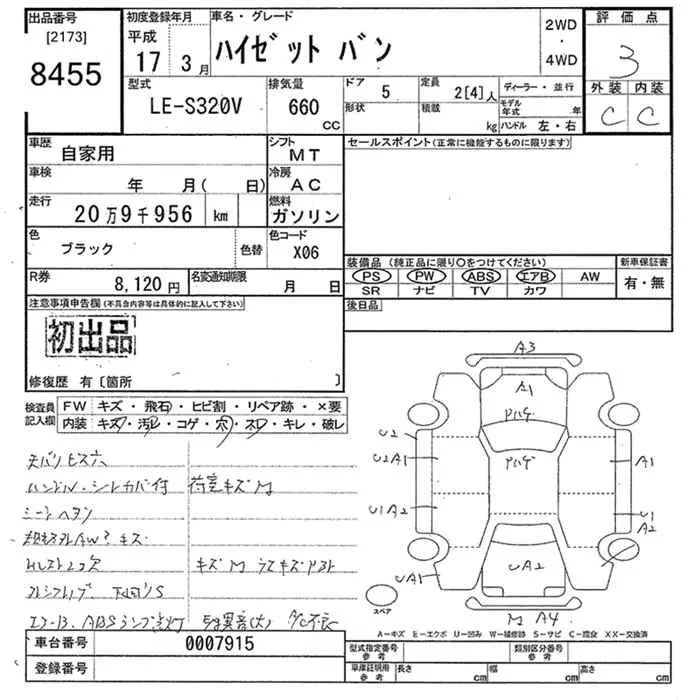 出品番号
[2173]
8455
初度登録年月
平成
17 3月
車名・グレード
ハイゼット バン
2WD
・
4WD
評価点
3
外装 内装
C C
型式
LE-S320V
排気量
660
CC
ドア
5
形状
定員
2[4]人
積載
kg
ディーラー・並行
モデル年式 年
ハンドル 左・右
車歴
自家用
シフト
MT
車検
年 月( 日)
冷房
AC
走行
20万9千956 km
燃料
ガソリン
色
ブラック
色替
色コード
X06
R券
8,120円
名変通知期限
月 日
セールスポイント(正常に機能するものに限ります)
装備品(純正品に限り○をつけてください)
新車保証書
PS PW ABS エアB AW
SR ナビ TV カワ
有・無
後日品
注意事項申告欄(不具合内容等は具体的に記入して下さい)
初出品
修復歴 有〔箇所 〕
検査員記入欄
FW キズ・飛石・ヒビ割・リペア跡・×要
内装 キズ・汚レ・コゲ・穴・スレ・キレ・破レ
天バリビス穴
ハンドル・シートカバー付 荷室キズM
シートヘタリ
AW キズ
キズM
エアーB.ABSランプ点灯
A3
A1
U2
U2A1
A1
U1A2
U1
A2
UA1
UA2
M A4
スペア
A-キズ E-エクボ U-凹み W-補修跡 S-サビ C-腐食 XX-交換済
車台番号
0007915
登録番号
型式指定番号
参考
類別区分番号
参考
車庫証明用
参考
長さ cm
幅 cm
高さ cm